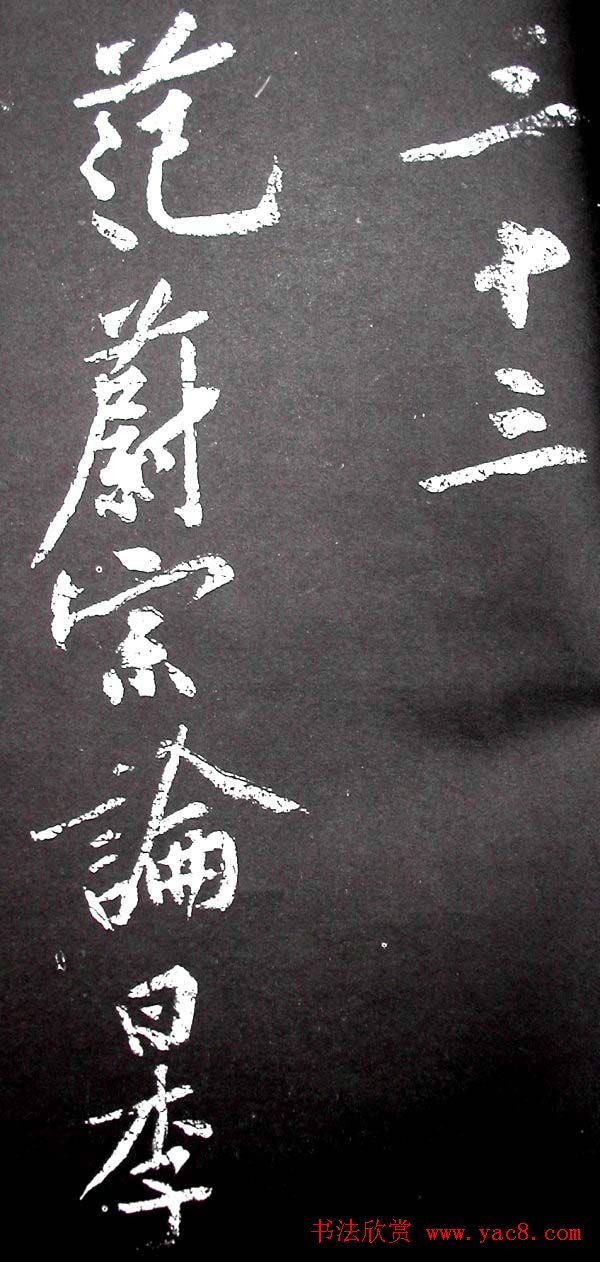 二十三
范蔚宗論曰李
书法欣赏 www.yac8.com